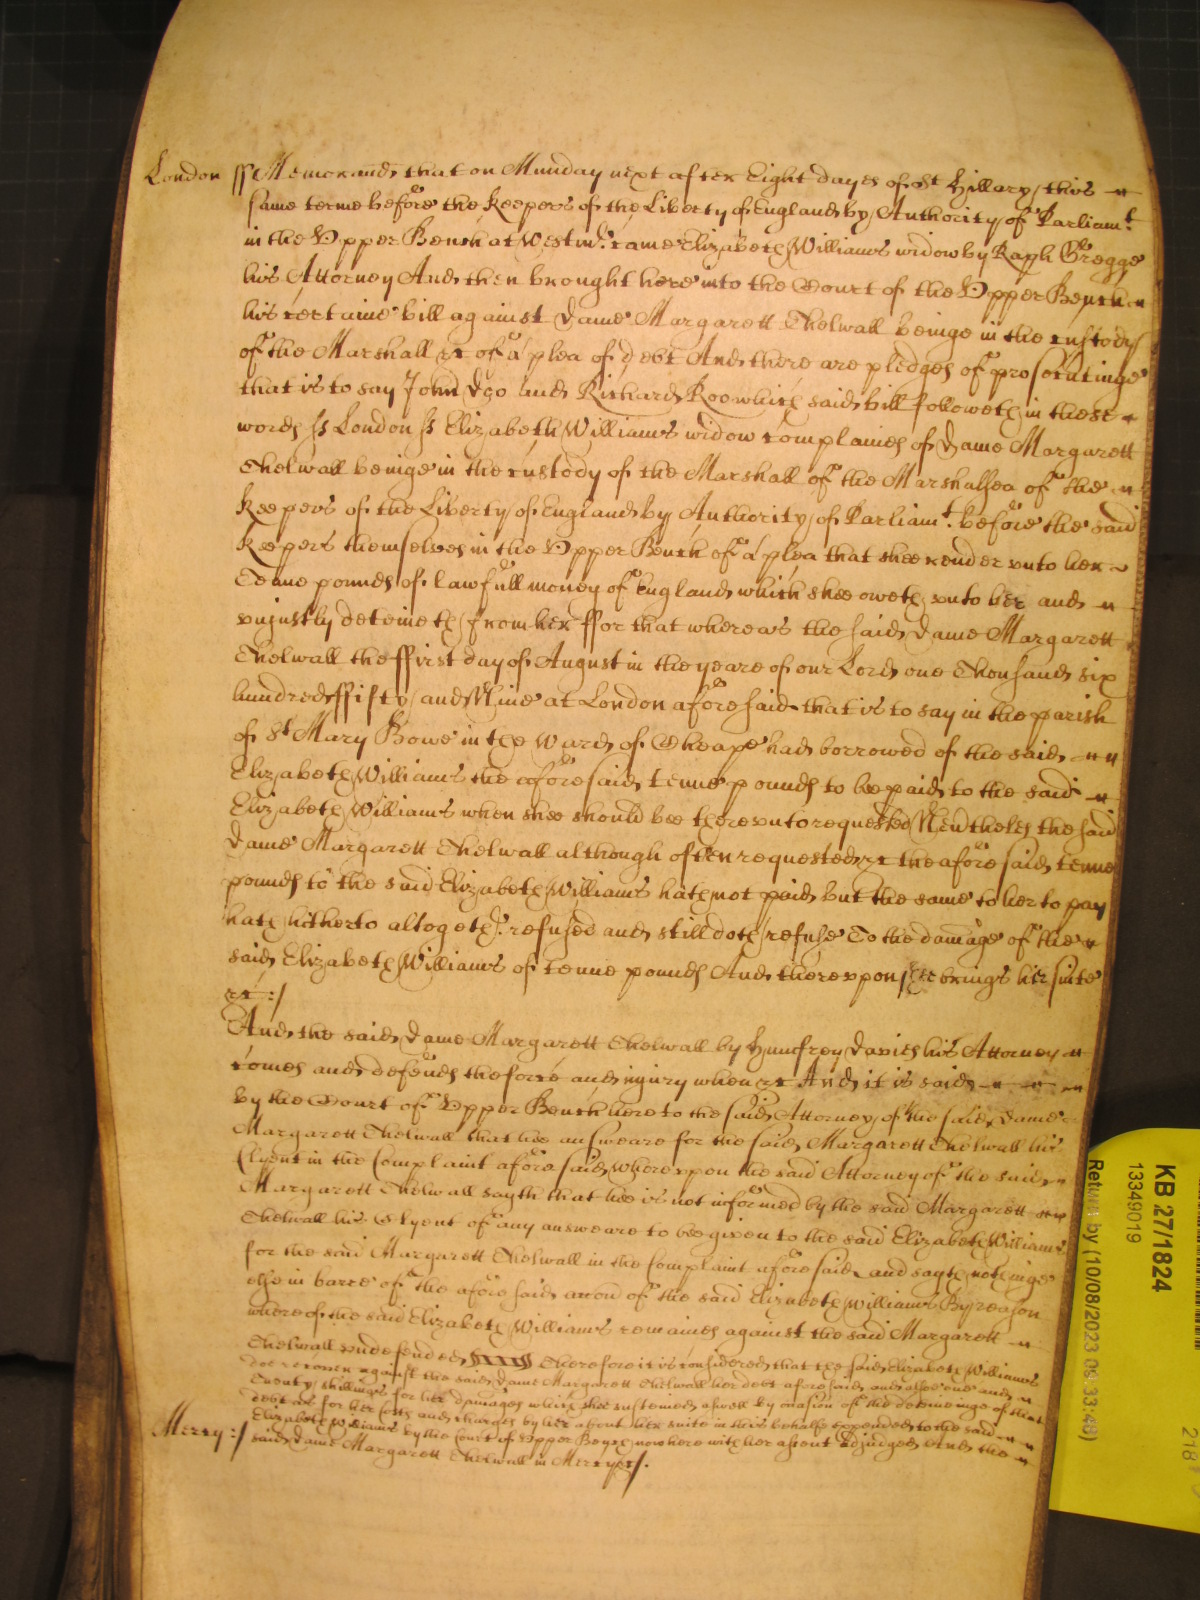 London ss Memorand that on Munday next after Eight dayes of St Hillary this
same terme before the Keepers of the Liberty of England by Authority of Parliamt.
in the Vpper Bench at Westmr. came Elizabeth Williams widow by Raph Gregge
his Attorney And then brought here into the Court of the Vpper Bench
his certaine bill against Dame Margarett Thelwall beinge in the custody
of the Marshall &c of a plea of debt And there are pledges of prosecutinge
that is to say John Doo and Richard Roo which said bill followeth in these
words ss London ss Elizabeth Williams widow complaines of Dame Margarett
Thelwall beinge in the custody of the Marshall of the Marshalsea of the
Keepers of the Liberty of England by Authority of Parliamt. before the said
Keepers themselves in the Vpper Bench of a plea that shee render vnto her
Tenne pounds of lawfull money of England which shee oweth vnto her and
vnjustly deteineth from her ffor that whereas the said Dame Margarett
Thelwall the ffirst day of August in the yeare of our Lord one Thousand six
hundred ffifty and Nine at London aforesaid that is to say in the parish
of St Mary Bowe in the Ward of Cheape had borrowed of the said
Elizabeth Williams the aforesaid tenne pounds to bee paid to the said
Elizabeth Williams when shee should bee therevnto requested Neutheles the said
Dame Margarett Thelwall although often requested &c the aforesaid tenne
pounds to the said Elizabeth Williams hath not paid but the same to her to pay
hath hitherto altogethr. refused and still doth refuse To the damage of the
said Elizabeth Williams of tenne pounds And therevpon shee brings her suite
&c:/
And the said Dame Margarett Thelwall by Humfrey Davies his Attorney
comes and defends the force and injury when &c And it is said
by the Court of Vpper Bench here to the said Attorney of the said Dame
Margarett Thelwall that hee answeare for the said Margarett Thelwall his
Clyent in the Complaint aforesaid wherevpon the said Attorney of the said
Margarett Thelwall sayth that hee is not informed by the said Margarett
Thelwall his Clyent of any answeare to be given to the said Elizabeth Williams
for the said Margarett Thelwall in the Complaint aforesaid and sayth nothinge
else in barre of the aforesaid accon of the said Elizabeth Williams By reason
whereof the said Elizabeth Williams remaines against the said Margarett
Thelwall vndefended Therefore it is considered that the said Elizabeth Williams
doe recover against the said Dame Margarett Thelwall her debt aforesaid and alsoe one and
twenty shillings for her damages which shee susteined aswell by occasion of the deteineinge of that
debt as for her costs and charges by her about her suite in this behalfe expended to the said
Elizabeth Williams by the Court of Vpper Bench now here with her assent adjudged And the
Mercy:/ said Dame Margarett Thelwall in Mercy &c/.
KB 27/1824
13349019
Return by (10/08/2023 09:33:48)
218